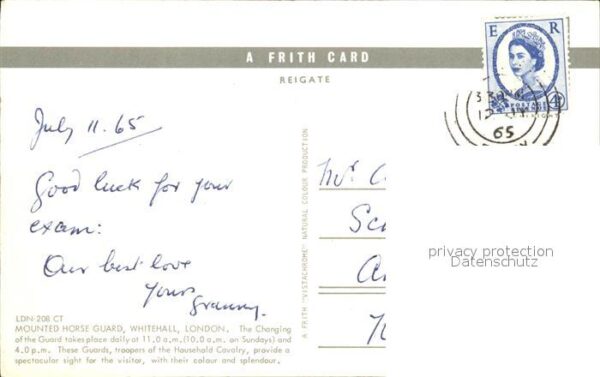 A FRITH CARD
REIGATE
E R
POSTAGE
3 30
12
65
July 11. 65
Good luck for your
exam:
Our best love
Yours
Granny.
A FRITH "VISTACHROME" NATURAL COLOUR PRODUCTION
privacy protection
Datenschutz
LDN·208 CT
MOUNTED HORSE GUARD, WHITEHALL, LONDON. The Changing
of the Guard takes place daily at 11.0 a.m. (10.0 a.m. on Sundays) and
4.0 p.m. These Guards, troopers of the Household Cavalry, provide a
spectacular sight for the visitor, with their colour and splendour.